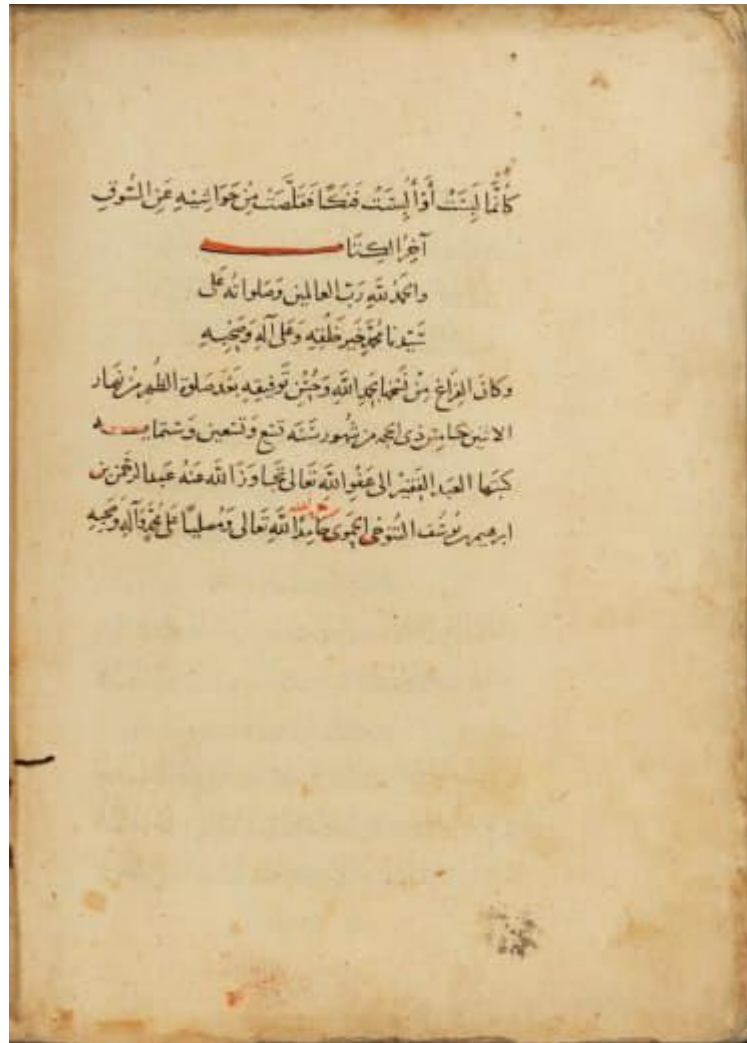 كَأَنَّمَا لَبِسَتْ أَوْ أُلْبِسَتْ فَنَكًا فَقَلَّصَتْ مِنْ حَوَاشِيْهِ عَنِ السُّوقِ
آخِرُ الكِتَاب
والحمدُ للهِ رَبِّ العالمين وَصَلواتُه عَلَى
سَيِّدنا مُحَمَّدٍ خَيرِ خَلْقِهِ وَعَلَى آلهِ وَصَحْبِهِ
وكانَ الفِرَاغ مِنْ نَسْخِهَا بِحَمدِ اللَّهِ وَحُسْنِ تَوفِيقِهِ بَعْدَ صَلوةِ الظُهر مِنْ نَهَار
الاثنين خامس ذي الحجه من شهور سَنَة تِسْع وَتسْعين وَستمايه
كتبَها العَبد الفَقيرُ الى عَفْوِ اللَّهِ تَعَالَى تَجَاوَزَ اللَّه عَنهُ عَبدُ الرَّحْمن بن
ابرهيم بن يُوسُف التنُوخي الحموي حَامِدًا للَّهِ تَعَالى وَمُصَليًا عَلَى مُحَمَّدٍ وَآلِهِ وَصَحبِهِ